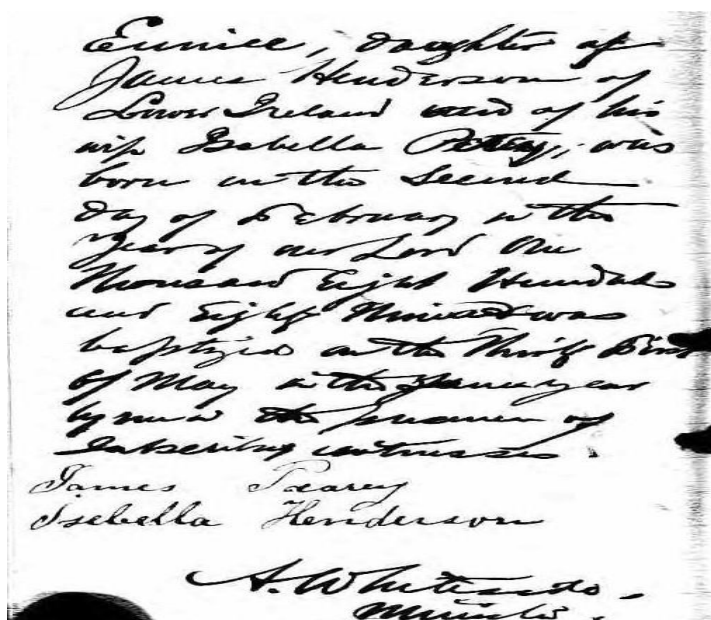 Eunice, daughter of
James Henderson of
Lower Ireland and of his
wife Isabella was
born on the Second
day of February in the
year of our Lord One
Thousand Eight Hundred
and Eighty was
baptized on the Thirty First
of May in the same year
by me in the presence of
Subscribing witnesses.
James Pearey
Isebella Henderson
A.
Minister.